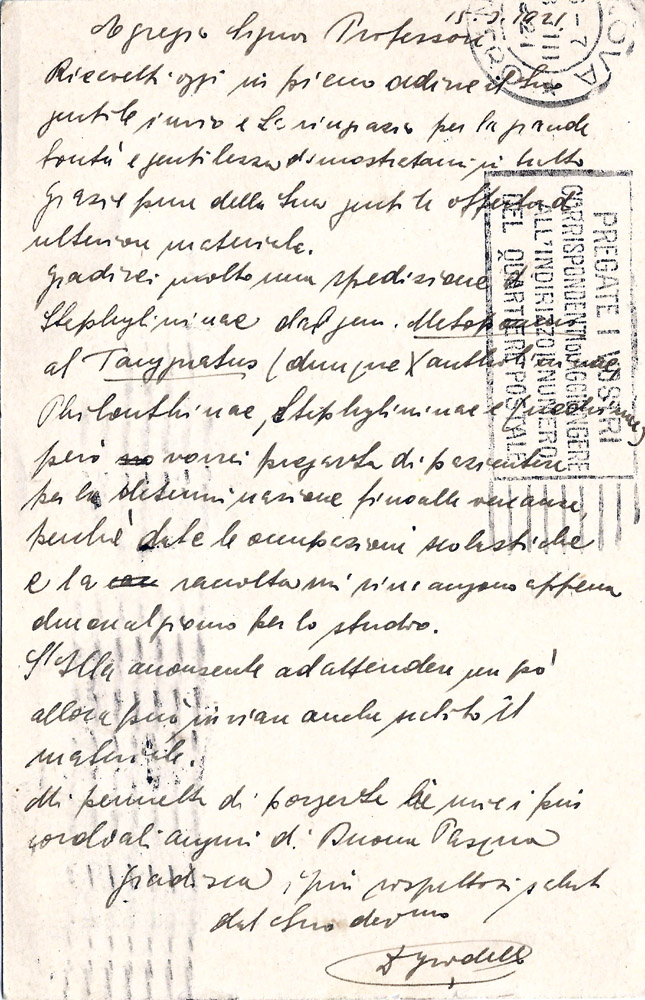 15.3.1921.
Egregio Signor Professore
Ricevetti oggi in pieno ordine il Suo
gentile invio e La ringrazio per la grande
bontà e gentilezza dimostratami in tutto
Grazie pure della Sua gentile offerta d
ulteriore materiale.
Gradirei molto una spedizione di
Staphylininae dal gen. Metoponcus
al Tanygnatus (dunque Xantholininae,
Philonthinae, Staphylininae e Quediinae)
però vorrei pregarLa di pazientare
per la determinazione fino alle vacanze,
perchè date le occupazioni scolastiche
e la raccolta mi rimangono appena
due ore al giorno per lo studio.
S'Ella acconsente ad attendere un pò
allora può inviare anche subito il
materiale.
Mi permetta di porgerLe i miei più
cordiali auguri di Buona Pasqua
Gradisca i più rispettosi saluti
dal Suo devmo
PREGATE I VOSTRI
CORRISPONDENTI D'AGGIUNGERE
ALL'INDIRIZZO IL NUMERO
DEL QUARTIERE POSTALE